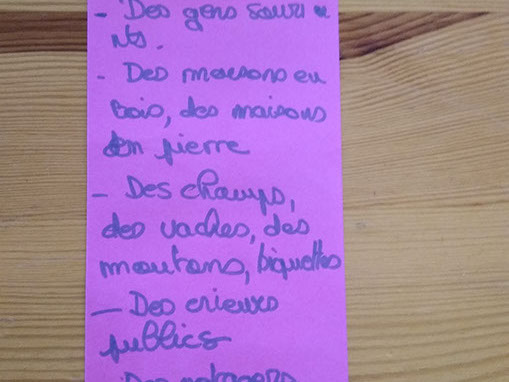 - Des gens souria
nts.
- Des maisons en
bois, des maisons
en pierre
- Des champs,
des vaches, des
moutons, biquettes
- Des crieurs
publics
- Des potagers